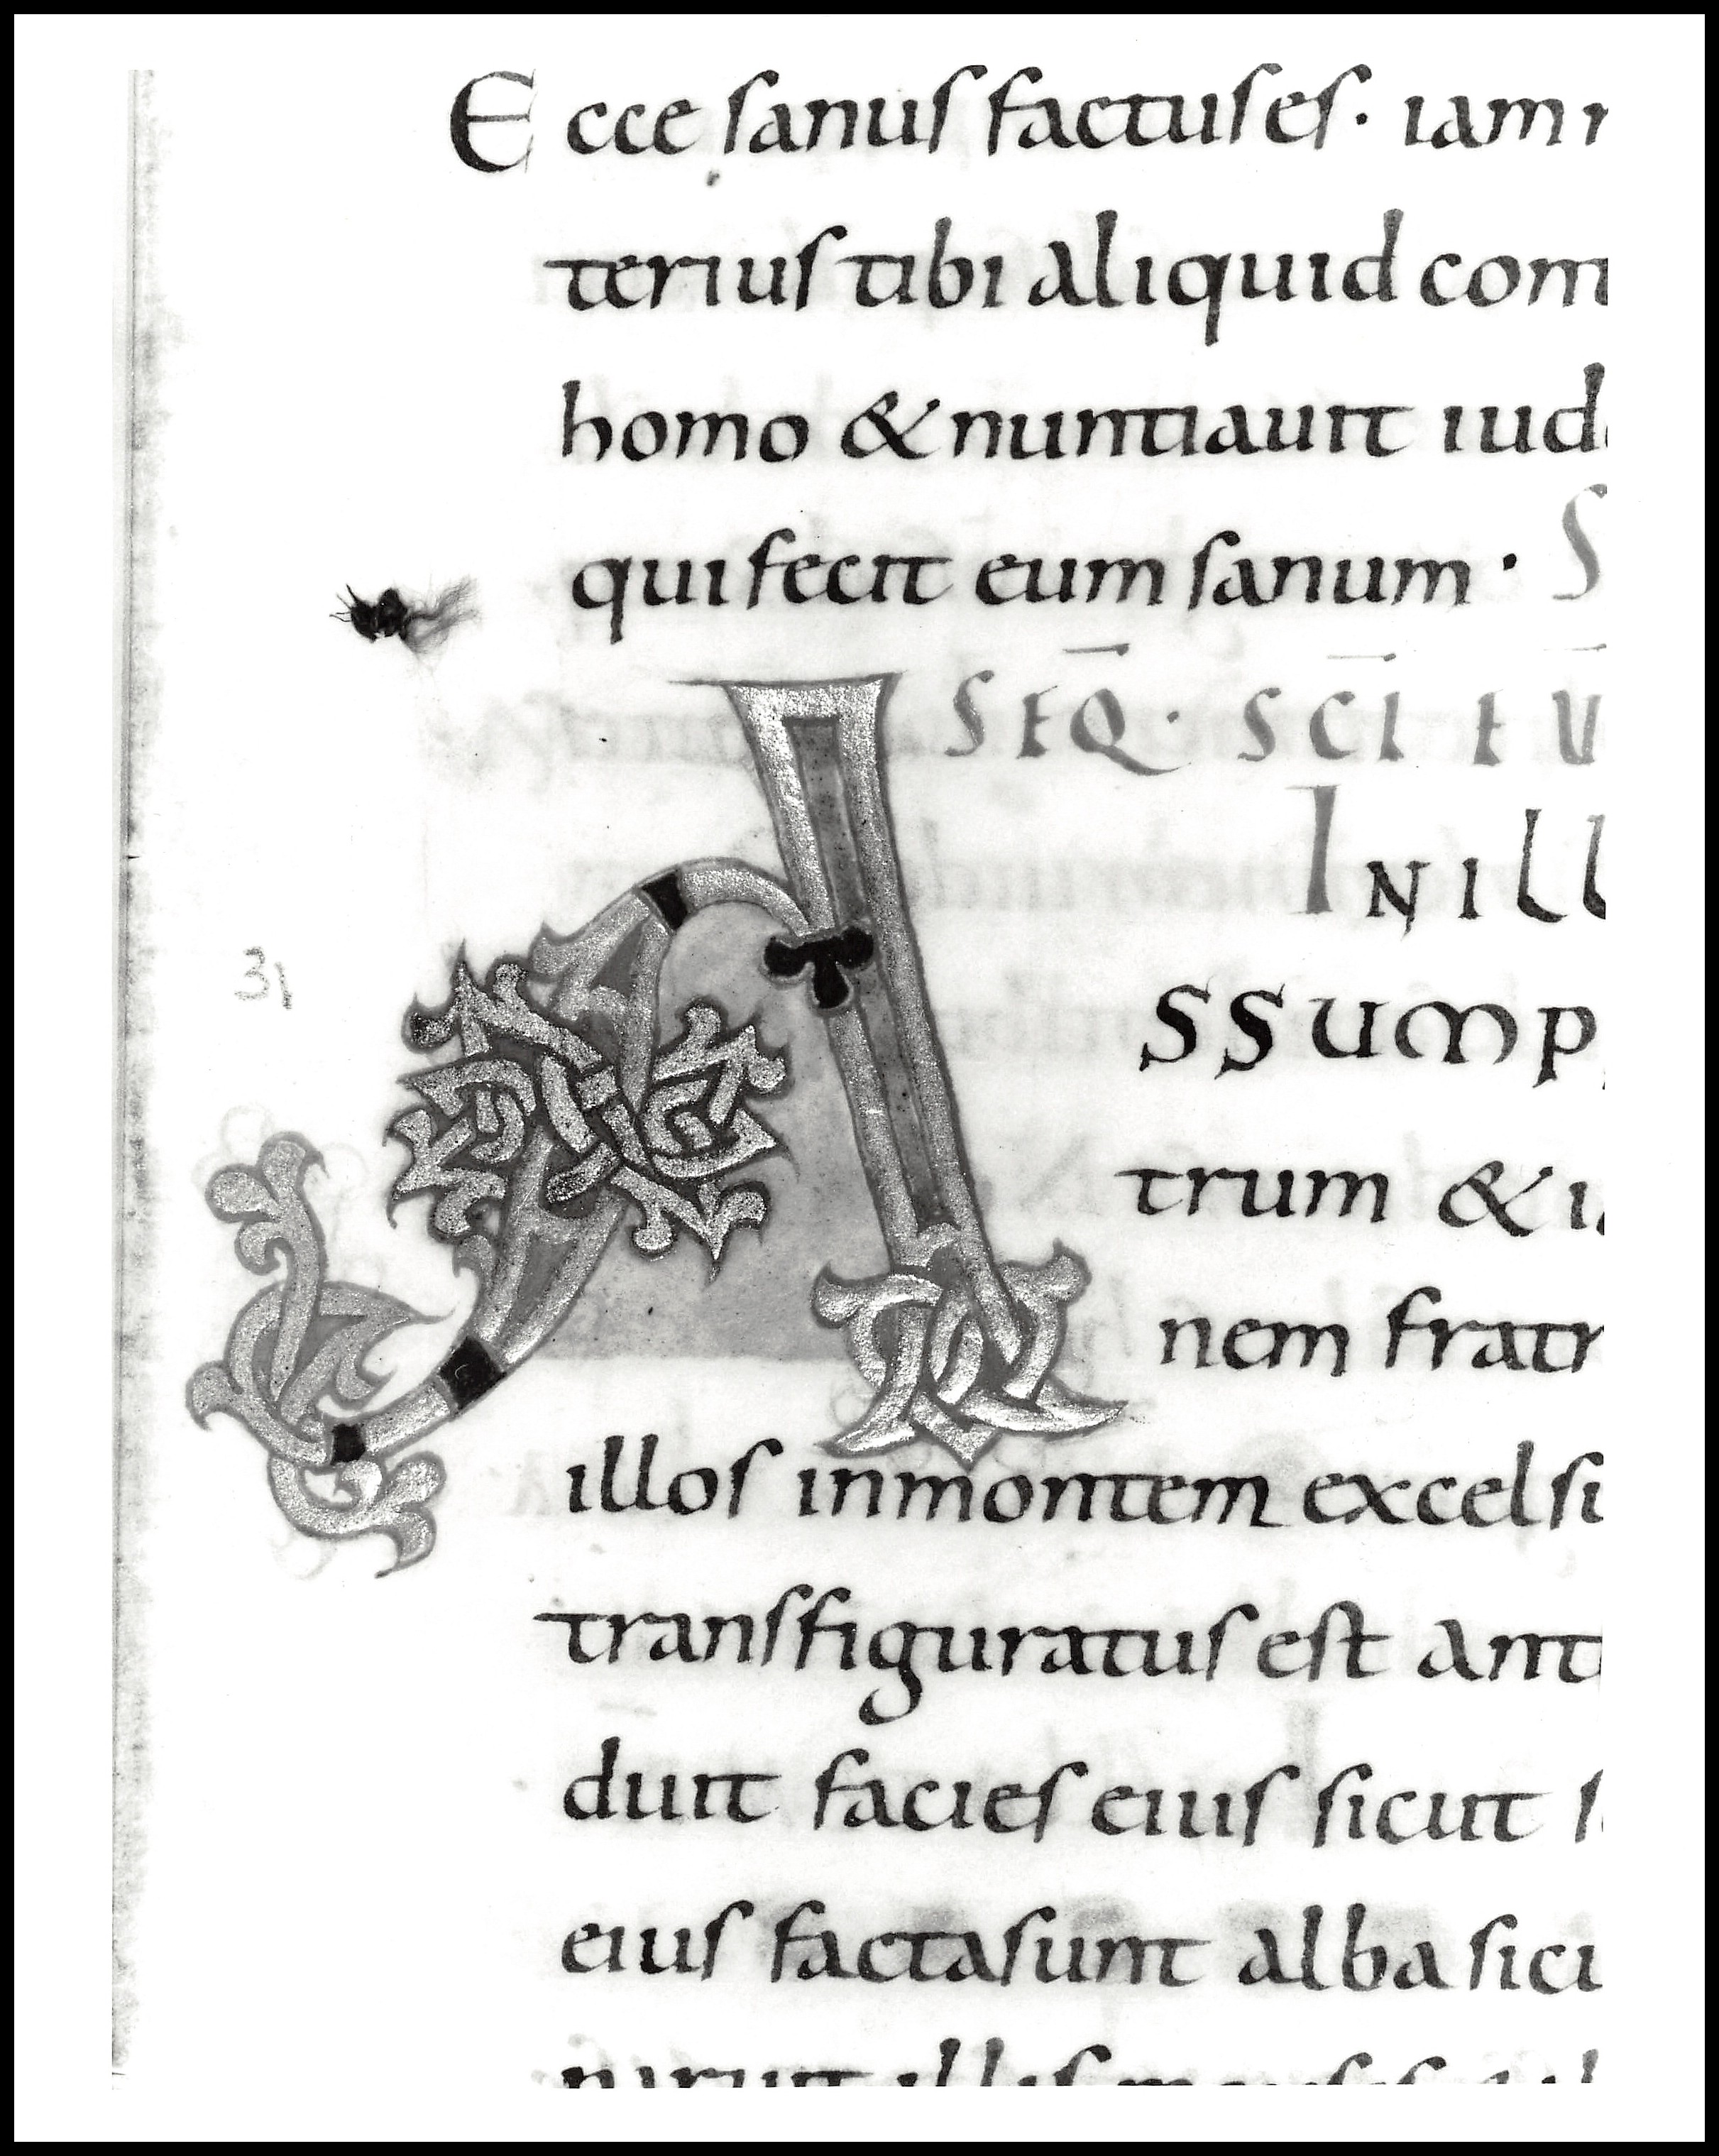 Ecce sanus factus es· iam n
terius tibi aliquid con
homo & nuntiauit iude
qui fecit eum sanum· S
SEQ· SCI EU
IN ILL
ASSUMP
trum & ia
nem fratr
31
illos in montem excelsu
transfiguratus est ant
duit facies eius sicut s
eius facta sunt alba sicu